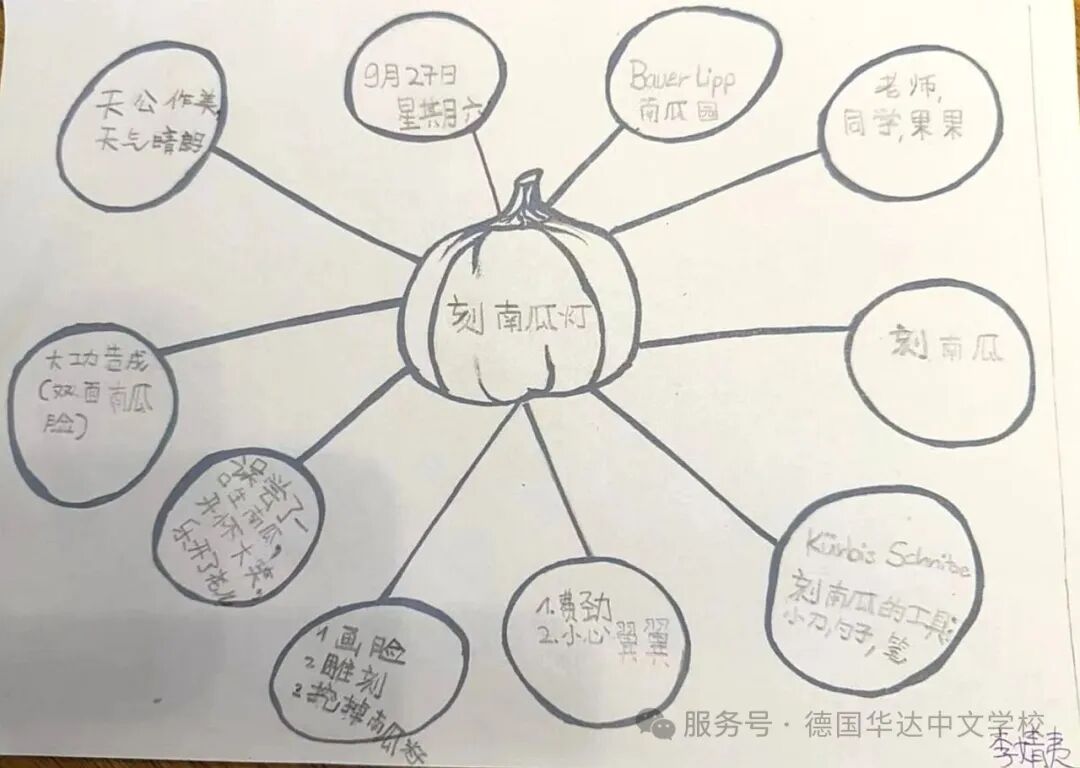 天公作美
天气晴朗
9月27日
星期六
Bauer Lipp
南瓜园
老师,
同学,果果
刻南瓜灯
刻南瓜
大功告成
(双面南瓜
脸)
误尝了一
口生南瓜,
开怀大笑,
乐开了花儿
1.画脸
2.雕刻
3.挖掉南瓜
1.费劲
2.小心翼翼
Kürbis Schnitze
刻南瓜的工具
小刀,勺子,笔
服务号·德国华达中文学校
李婧夷